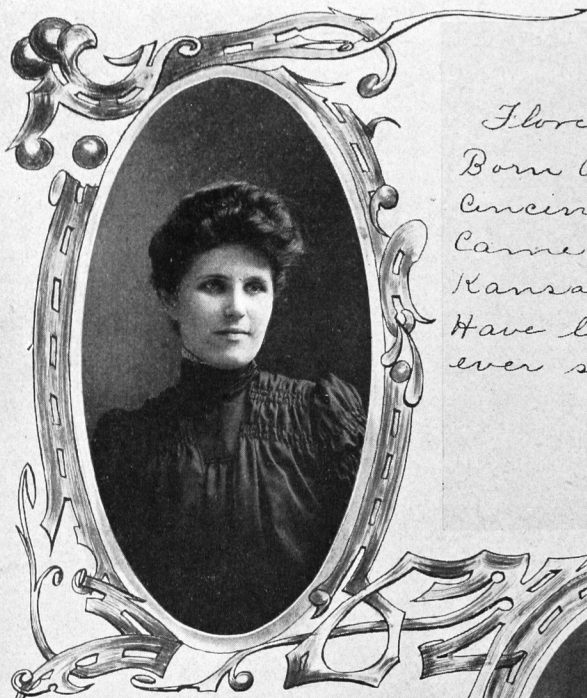 Flore
Born
Cincin
Came
Kansa
Have l
ever s